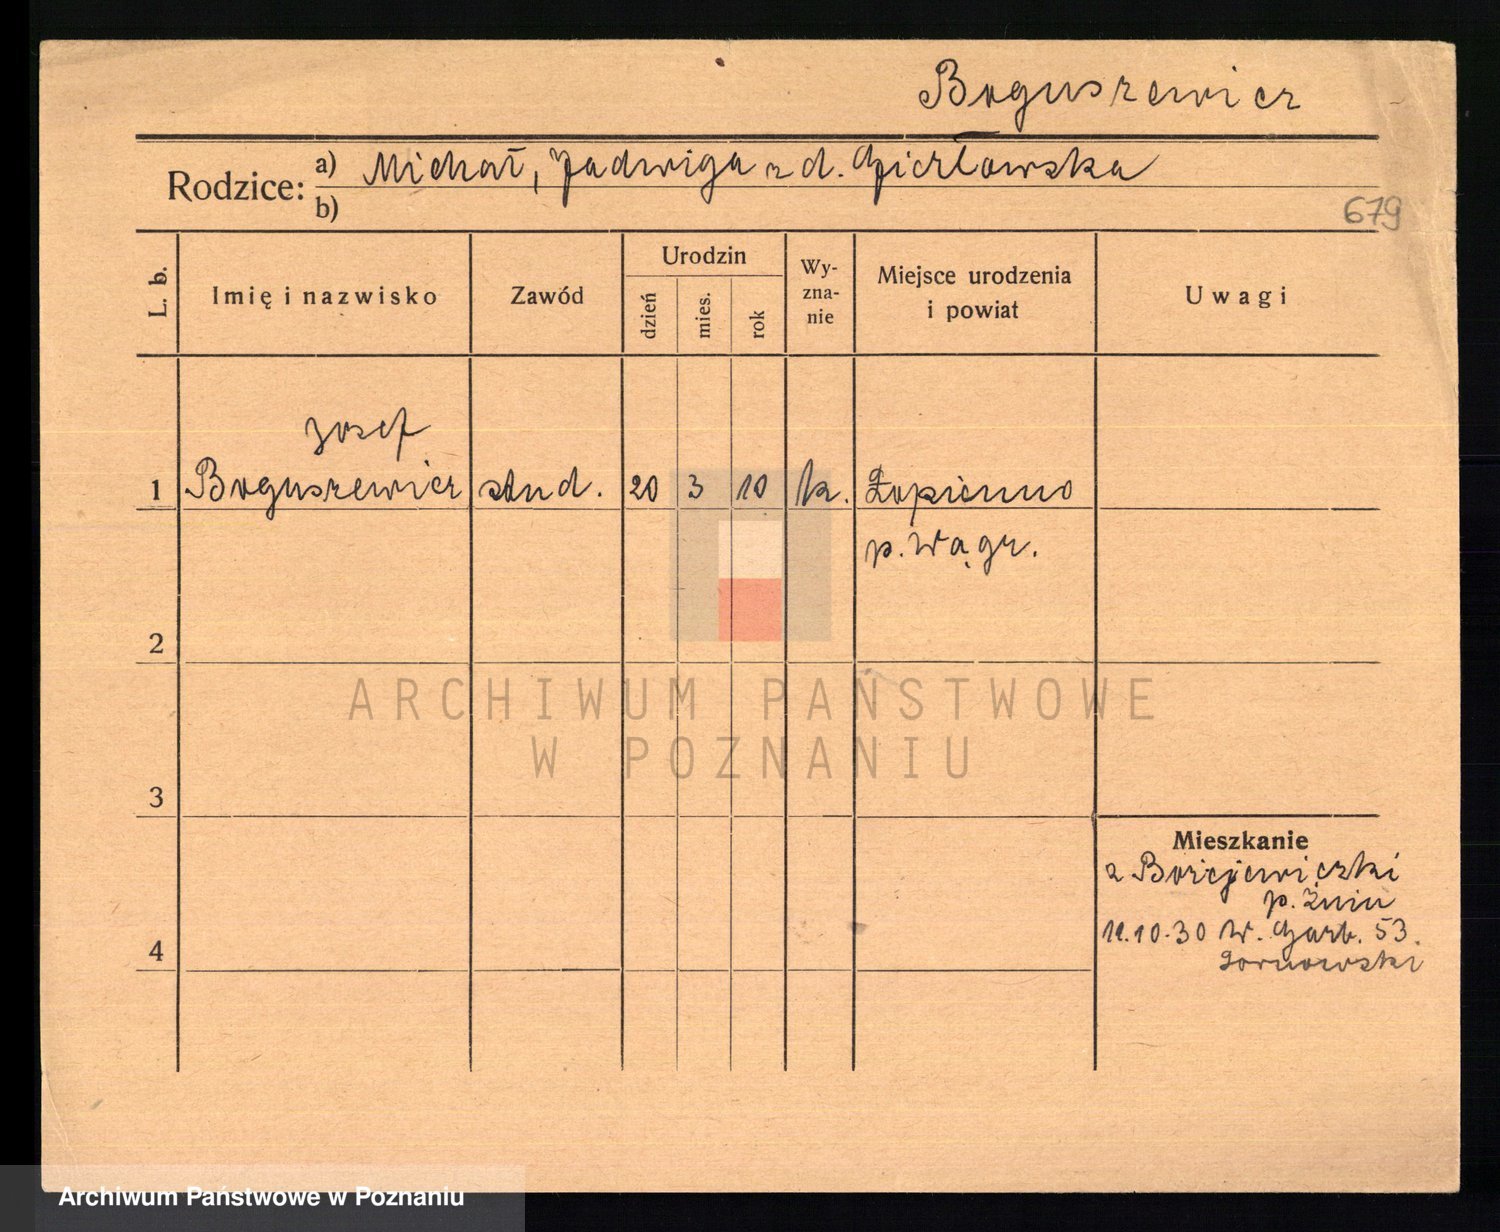 Boguszewicz
Rodzice: a) Michał, Jadwiga z d. Gierłowska
b)
679
L. b.
Imię i nazwisko
Zawód
Urodzin
dzień
mies.
rok
Wy-
zna-
nie
Miejsce urodzenia
i powiat
Uwagi
Josef
1 Boguszewicz stud. 20 3 10 k. Łopienno
p. Wągr.
2
ARCHIWUM PAŃSTWOWE
W POZNANIU
3
Mieszkanie
z Bożejewiczki
p. Żnin
4
11.10.30 W. Garb. 53.
Archiwum Państwowe w Poznaniu